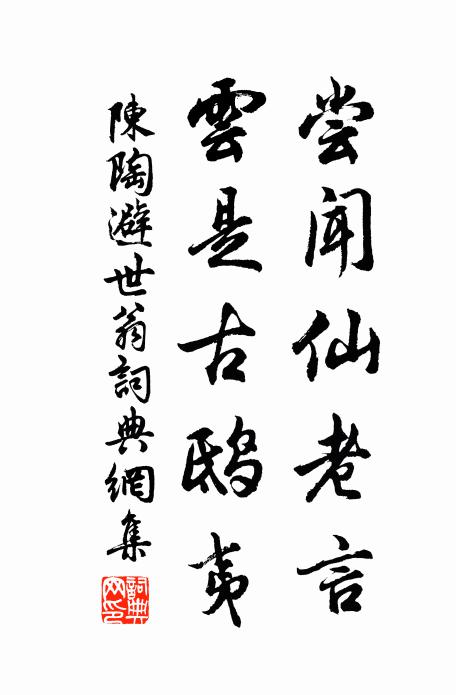 尝闻仙老言
雲是古鸱夷
陳陶避世翁詞典網集
詞典網印